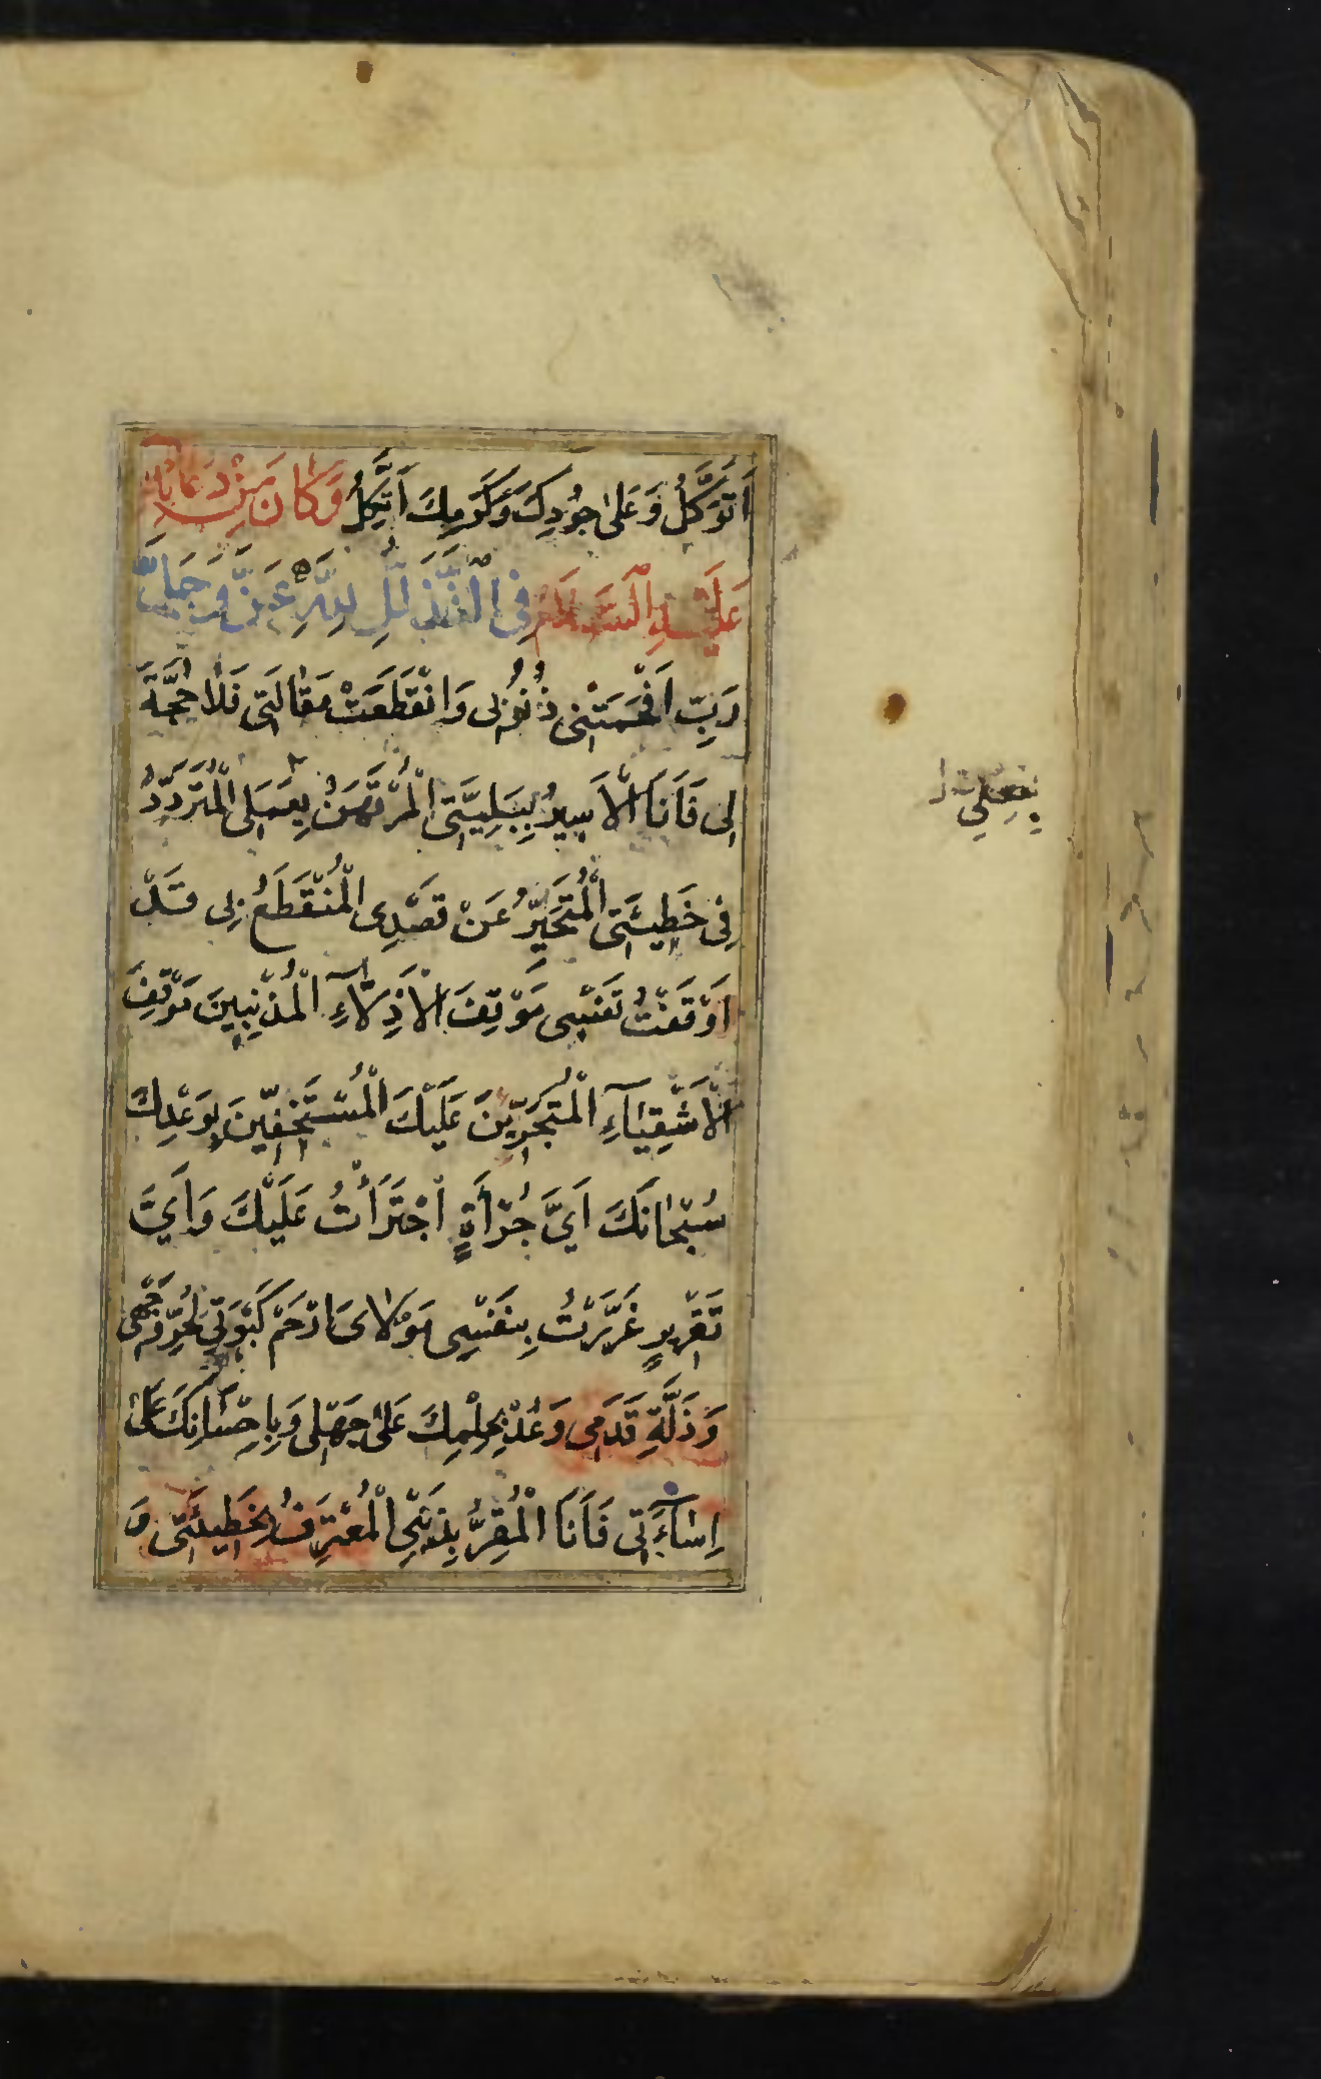 اَتَوَكَّلُ وَعَلٰى جُودِكَ وَكَرَمِكَ اَتَّكِلُ وَكَانَ مِنْ دُعَائِهِ
عَلَيْهِ السَّلَامُ فِى التَّذَلُّلِ لِلّٰهِ عَزَّ وَجَلَّ
رَبِّ اَفْحَمَتْنِى ذُنُوُبِى وَانْقَطَعَتْ مَقَالَتِى فَلَا حُجَّةَ
لِى فَاَنَا الْاَسِيرُ بِبَلِيَّتِى الْمُرْتَهَنُ بِعَمَلِى الْمُتَرَدِّدُ
فِى خَطِيئَتِى الْمُتَحَيِّرُ عَنْ قَصْدِى الْمُنْقَطَعُ بِى قَدْ
اَوْقَفْتُ نَفْسِى مَوْقِفَ الْاَذِلَّاءِ الْمُذْنِبِينَ مَوْقِفَ
الْاَشْقِيَاءِ الْمُتَجَرِّينَ عَلَيْكَ الْمُسْتَخِفِّينَ بِوَعْدِكَ
سُبْحَانَكَ اَىَّ جُرْأَةٍ اجْتَرَأْتُ عَلَيْكَ وَاَىَّ
تَغْرِيرٍ غَرَّرْتُ بِنَفْسِى مَوْلَاىَ ارْحَمْ كَبْوَتِى لِحُرِّ وَجْهِى
وَذَلَّةِ قَدَمِى وَعُدْ بِحِلْمِكَ عَلٰى جَهْلِى وَبِاِحْسَانِكَ عَلٰى
اِسَاءَتِى فَاَنَا الْمُقِرُّ بِذَنْبِى الْمُعْتَرِفُ بِخَطِيئَتِى وَ